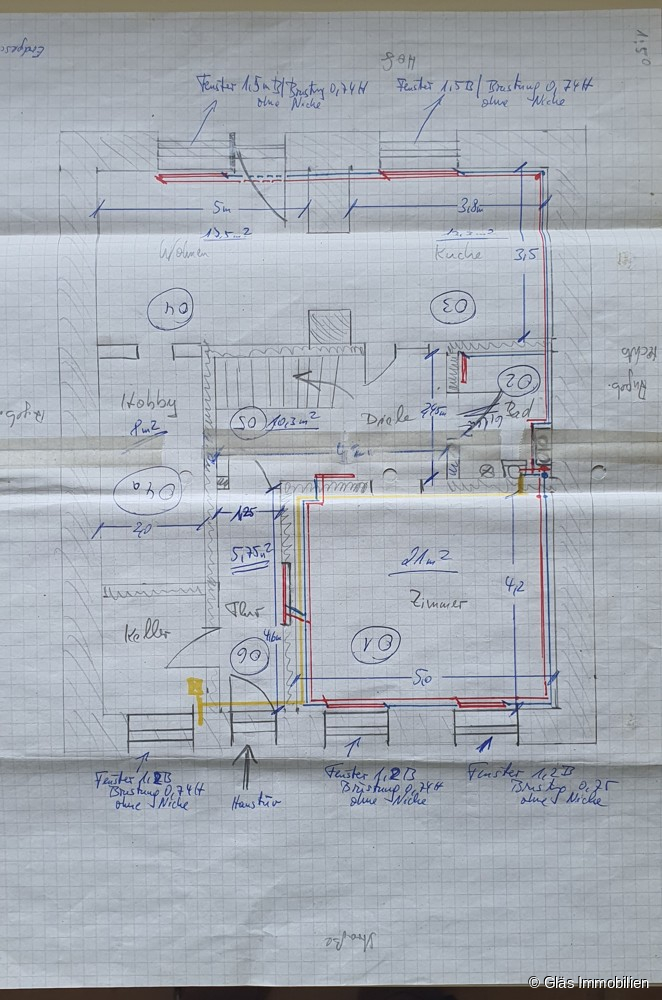 Hof
Fenster 1,5m B/ Brüstung 0,74H
ohne Niche
Fenster 1,5B/ Brüstung 0,74H
ohne Niche
5m
3,8m
Wohnen
Küche
3,5
04
03
02
Hobby
8m²
05
10,3m²
Diele
Bad
04a
2,0
1,25
5,75m²
21m²
Zimmer
4,2
Keller
Flur
4,6m
06
01
5,0
Fenster 1,2B
Brüstung 0,74H
ohne Niche
Haustür
Fenster 1,2B
Brüstung 0,74H
ohne Niche
Fenster 1,2B
Brüstung 0,75
ohne Niche
Straße
© Gläs Immobilien